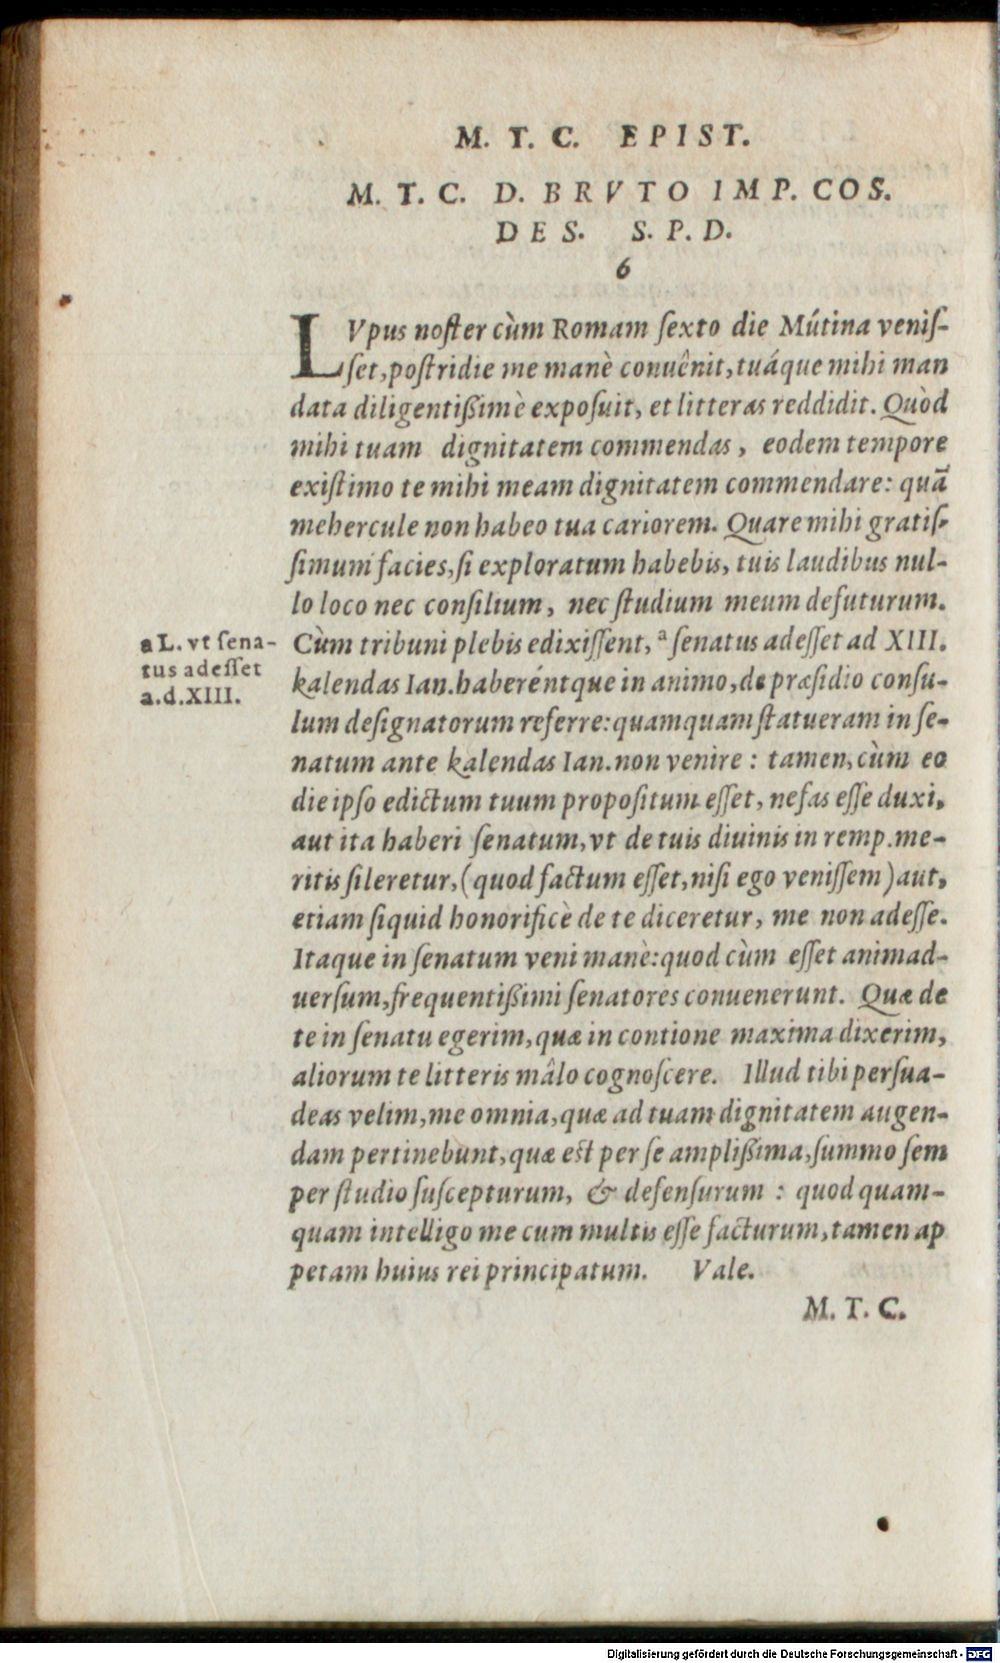 M. T. C. EPIST.
M. T. C. D. BRVTO IMP. COS.
DES. S. P. D.
6
LVpus noſter cùm Romam ſexto die Mútina veniſ-
ſet, poſtridie me manè conuênit, tuáque mihi man
data diligentißimè expoſuit, et litteras reddidit. Quòd
mihi tuam dignitatem commendas, eodem tempore
exiſtimo te mihi meam dignitatem commendare: quã
mehercule non habeo tua cariorem. Quare mihi gratiſ-
ſimum facies, ſi exploratum habebis, tuis laudibus nul-
lo loco nec conſilium, nec ſtudium meum defuturum.
Cùm tribuni plebis edixiſſent, ª ſenatus adeſſet ad XIII.
kalendas Ian. haberéntque in animo, de præſidio conſu-
lum deſignatorum referre: quamquam ſtatueram in ſe-
natum ante kalendas Ian. non venire: tamen, cùm eo
die ipſo edictum tuum propoſitum eſſet, nefas eſſe duxi,
aut ita haberi ſenatum, vt de tuis diuinis in remp. me-
ritis ſileretur, (quod factum eſſet, niſi ego veniſſem) aut,
etiam ſiquid honorificè de te diceretur, me non adeſſe.
Itaque in ſenatum veni manè: quod cùm eſſet animad-
uerſum, frequentißimi ſenatores conuenerunt. Quæ de
te in ſenatu egerim, quæ in contione maxima dixerim,
aliorum te litteris mâlo cognoſcere. Illud tibi perſua-
deas velim, me omnia, quæ ad tuam dignitatem augen-
dam pertinebunt, quæ eſt per ſe amplißima, ſummo ſem
per ſtudio ſuſcepturum, & defenſurum: quod quam-
quam intelligo me cum multis eſſe facturum, tamen ap
petam huius rei principatum. Vale.
M. T. C.
a L. vt ſena-
tus adeſſet
a.d.XIII.
Digitalisierung gefördert durch die Deutsche Forschungsgemeinschaft - DFG